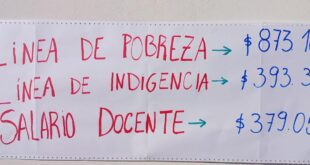 LINEA DE POBREZA → $873.1
LINEA DE INDIGENCIA → $393.3
SALARIO DOCENTE → $379.05